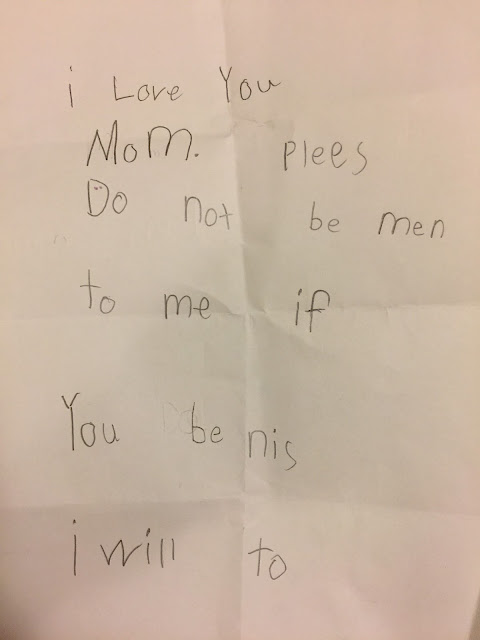 i Love You
Mom. Plees
Do not be men
to me if
You be nis
i will to